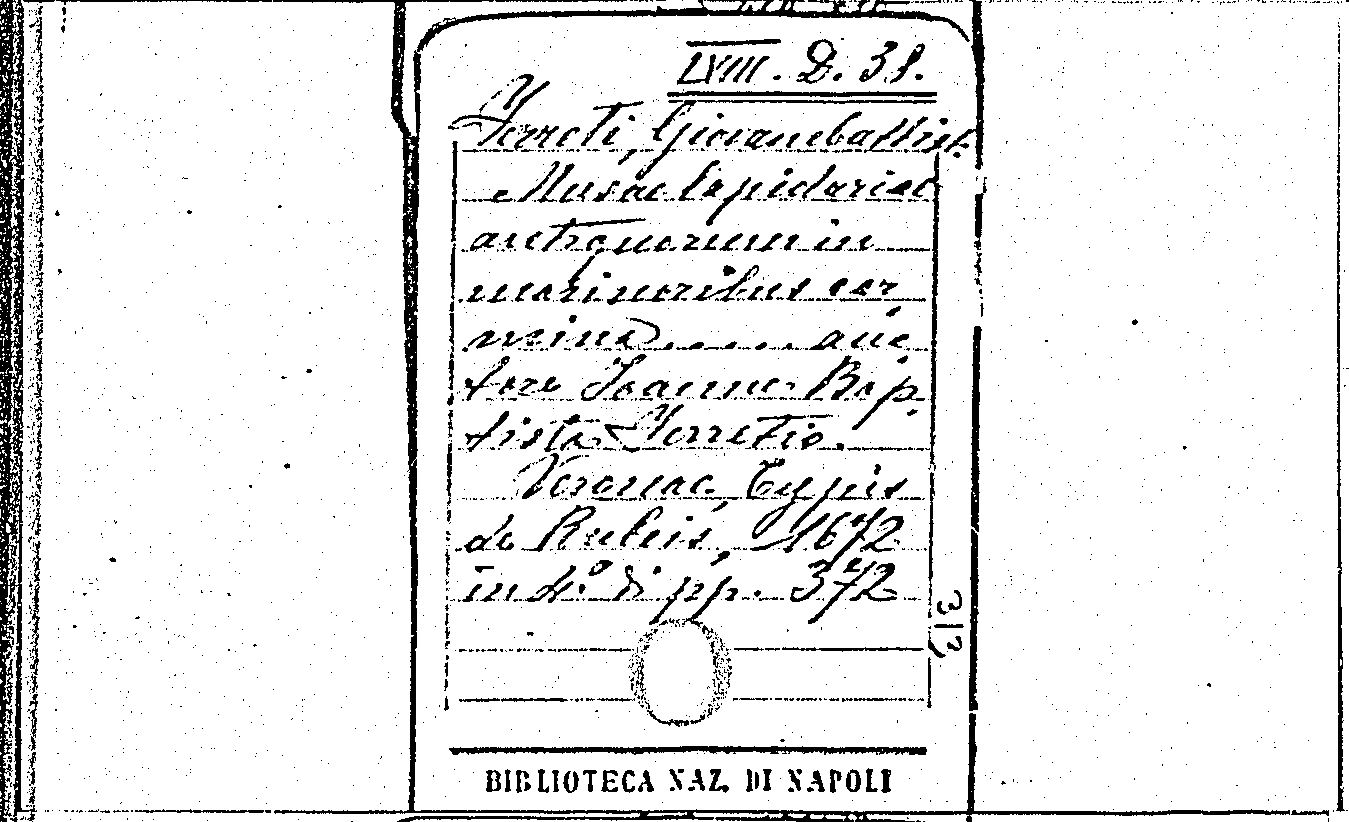 LVIII. D. 38.
Ferreti, Giovanebattist.
Musae lapidariae
antiquorum in
marmoribus car
mina ..... auc
tore Joanne Bap
tista Ferretio.
Veronae, Typis
de Rubeis, 1672
in 4º di pp. 372
BIBLIOTECA NAZ. DI NAPOLI